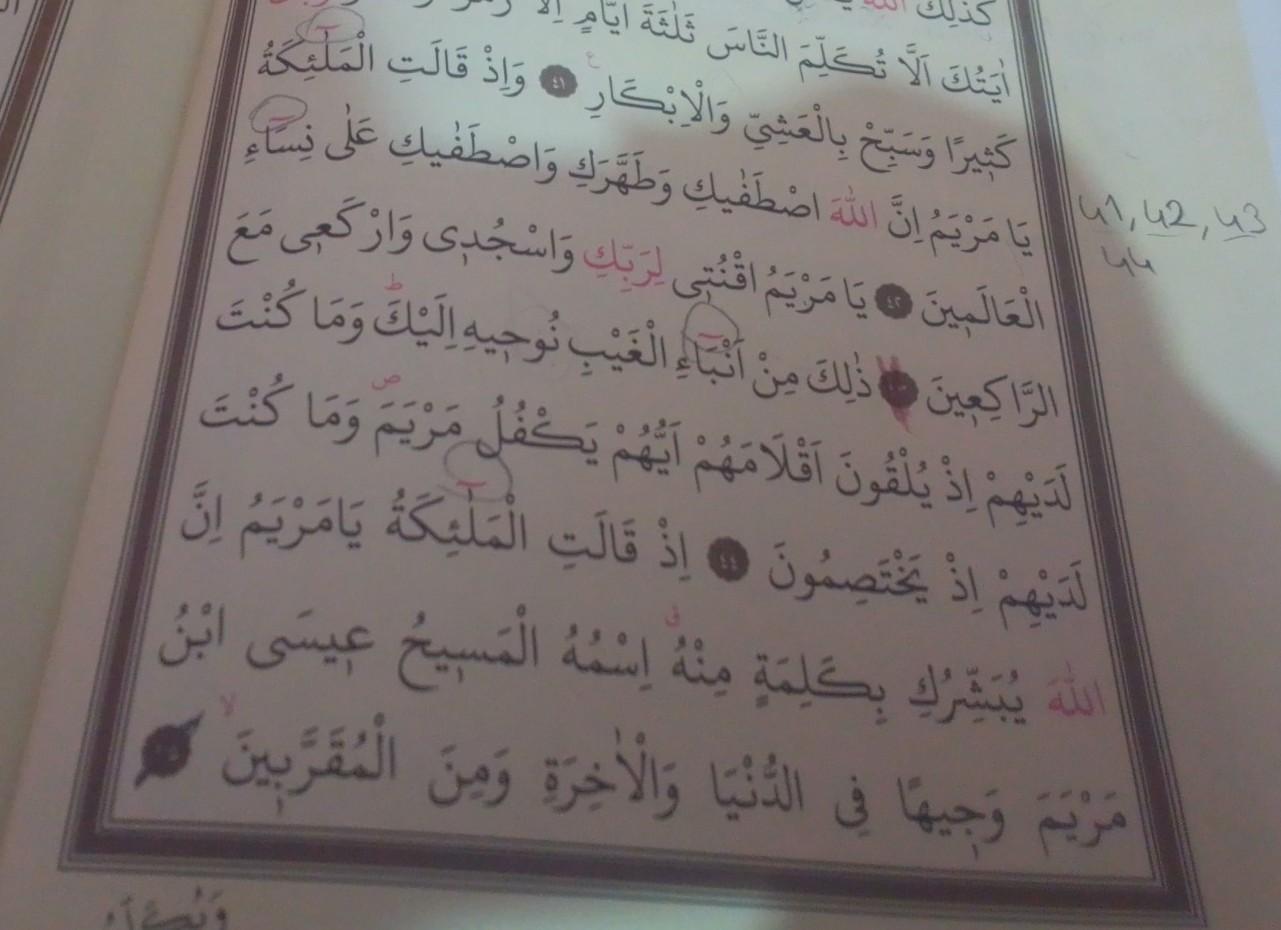 كَذٰلِكَ اللّٰهُ
اٰيَتُكَ اَلَّا تُكَلِّمَ النَّاسَ ثَلٰثَةَ اَيَّامٍ اِلَّا
كَثٖيرًا وَسَبِّحْ بِالْعَشِيِّ وَالْاِبْكَارِ ﴿٤١﴾ وَاِذْ قَالَتِ الْمَلٰٓئِكَةُ
يَا مَرْيَمُ اِنَّ اللّٰهَ اصْطَفٰيكِ وَطَهَّرَكِ وَاصْطَفٰيكِ عَلٰى نِسَٓاءِ
الْعَالَمٖينَ ﴿٤٢﴾ يَا مَرْيَمُ اقْنُتٖى لِرَبِّكِ وَاسْجُدٖى وَارْكَعٖى مَعَ
الرَّاكِعٖينَ ﴿٤٣﴾ ذٰلِكَ مِنْ اَنْبَٓاءِ الْغَيْبِ نُوحٖيهِ اِلَيْكَؕ وَمَا كُنْتَ
لَدَيْهِمْ اِذْ يُلْقُونَ اَقْلَامَهُمْ اَيُّهُمْ يَكْفُلُ مَرْيَمَࣕ وَمَا كُنْتَ
لَدَيْهِمْ اِذْ يَخْتَصِمُونَ ﴿٤٤﴾ اِذْ قَالَتِ الْمَلٰٓئِكَةُ يَامَرْيَمُ اِنَّ
اللّٰهَ يُبَشِّرُكِ بِكَلِمَةٍ مِنْهُۗ اِسْمُهُ الْمَسٖيحُ عٖيسَى ابْنُ
مَرْيَمَ وَجٖيهًا فِى الدُّنْيَا وَالْاٰخِرَةِ وَمِنَ الْمُقَرَّبٖينَۙ ﴿٤٥﴾
41, 42, 43
44